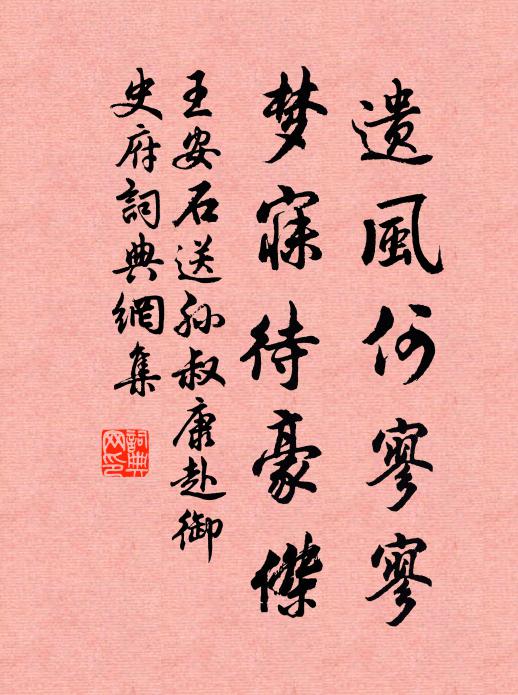 遺風何寥寥
梦寐待豪傑
王安石送孙叔康赴御
史府詞典網集
詞典
网印